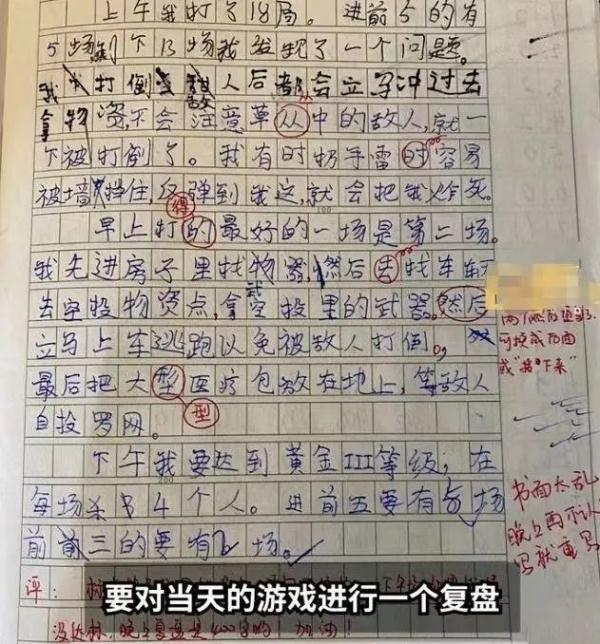 上午我打了18局。进前5的有
5场剩下13场我发现了一个问题。
我打倒敌人后都会立马冲过去
拿物资,不会注意草从中的敌人,就一
下被打倒了。我有时扔手雷时容易
被墙挡住,反弹到我这,就会把我炸死。
得
早上打的最好的一场是第二场。
我先进房子里找物器,然后去找车辆
去空投物资点,拿空投里的武器,然后
武
立马上车逃跑以免被敌人打倒。
最后把大型医疗包放在地上,等敌人
自投罗网。
型
下午我要达到黄金III等级,在
每场杀4个人。进前五要有5场
前三的要有2场。
可换成后面
或"接下来"
书面太乱
晚上再不认
写就重写
评:
没达标,晚上复盘是400字的!加油!
要对当天的游戏进行一个复盘